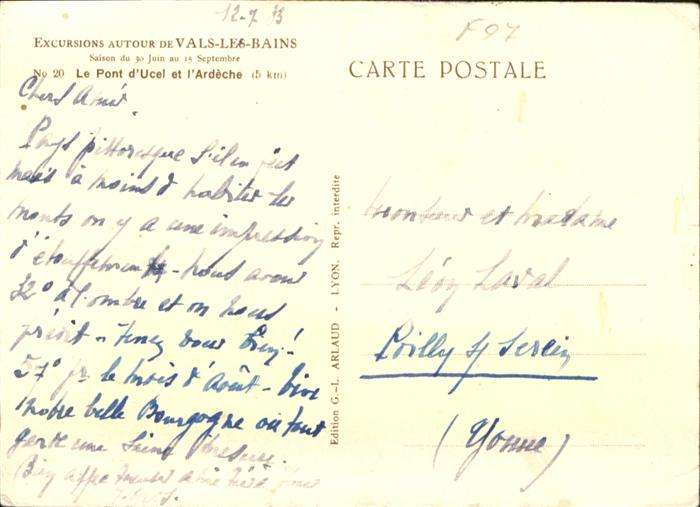 12-7
F97
EXCURSIONS AUTOUR DE VALS-LES-BAINS
Saison du 30 Juin au 15 Septembre
No 20 Le Pont d'Ucel et l'Ardèche (5 km)
CARTE POSTALE
Chers Amis
Pays pittoresque s'il en est
mais à moins d habiter les
monts on y a une impression
d'étouffement - nous avons
32° à l'ombre et on nous
prédit - Tenez vous bien!
57° pr le mois d'Août - Vive
notre belle Bourgogne où tout
garde une
Bien affectueuse
Edition G.-L. ARLAUD - LYON. Repr. interdite
Monsieur et Madame
Léon Laval
Poilly s/ Serein
(Yonne)